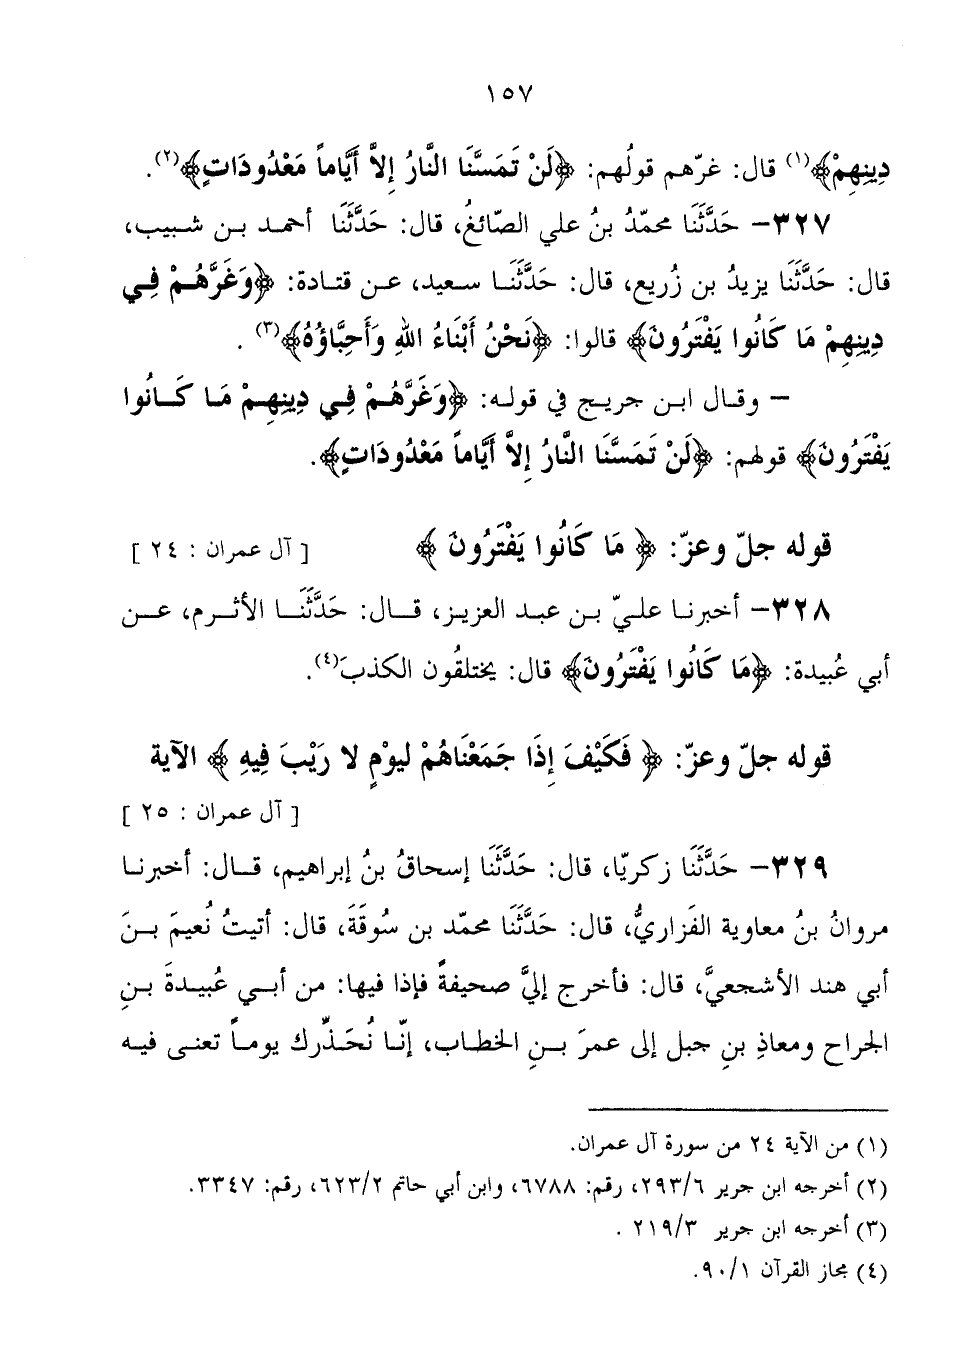 ١٥٧
دِينِهِمْ﴾(١) قال: غرّهم قولُهم: ﴿لَنْ تَمَسَّنَا النَّارُ إِلاَّ أَيَّاماً مَعْدُودَاتٍ﴾(٢).
٣٢٧– حَدَّثَنَا محمّدُ بنُ علي الصّائغُ، قال: حَدَّثَنَا أحمد بن شبيب،
قال: حَدَّثَنَا يزيدُ بن زُريع، قال: حَدَّثَنَا سعيد، عن قتادة: ﴿وَغَرَّهُمْ فِي
دِينِهِمْ مَا كَانُوا يَفْتَرُونَ﴾ قالوا: ﴿نَحْنُ أَبْنَاءُ اللهِ وَأَحِبَّاؤُهُ﴾(٣) .
– وقال ابن جريج في قوله: ﴿وَغَرَّهُمْ فِي دِينِهِمْ مَا كَانُوا
يَفْتَرُونَ﴾ قولهم: ﴿لَنْ تَمَسَّنَا النَّارُ إِلاَّ أَيَّاماً مَعْدُودَاتٍ﴾.
قوله جلّ وعزّ: ﴿ مَا كَانُوا يَفْتَرُونَ ﴾ [ آل عمران : ٢٤ ]
٣٢٨– أخبرنا عليّ بن عبد العزيز، قال: حَدَّثَنَا الأثرم، عن
أبي عُبيدة: ﴿مَا كَانُوا يَفْتَرُونَ﴾ قال: يختلقُون الكذبَ(٤).
قوله جلّ وعزّ: ﴿ فَكَيْفَ إِذَا جَمَعْنَاهُمْ لِيوْمٍ لا رَيْبَ فِيهِ ﴾ الآية
[ آل عمران : ٢٥ ]
٣٢٩– حَدَّثَنَا زكريّا، قال: حَدَّثَنَا إسحاقُ بنُ إبراهيم، قال: أخبرنا
مروانُ بنُ معاوية الفَزاريُّ، قال: حَدَّثَنَا محمّد بن سُوقَةَ، قال: أتيتُ نُعيمَ بنَ
أبي هند الأشجعيَّ، قال: فأخرج إليَّ صحيفةً فإذا فيها: من أبي عُبيدةَ بنِ
الجراح ومعاذِ بنِ جبل إلى عمرَ بنِ الخطاب، إنّا نُحَذِّرك يوماً تعنى فيه
(١) من الآية ٢٤ من سورة آل عمران.
(٢) أخرجه ابن جرير ٢٩٣/٦، رقم: ٦٧٨٨، وابن أبي حاتم ٦٢٣/٢، رقم: ٣٣٤٧.
(٣) أخرجه ابن جرير ٢١٩/٣ .
(٤) مجاز القرآن ٩٠/١.